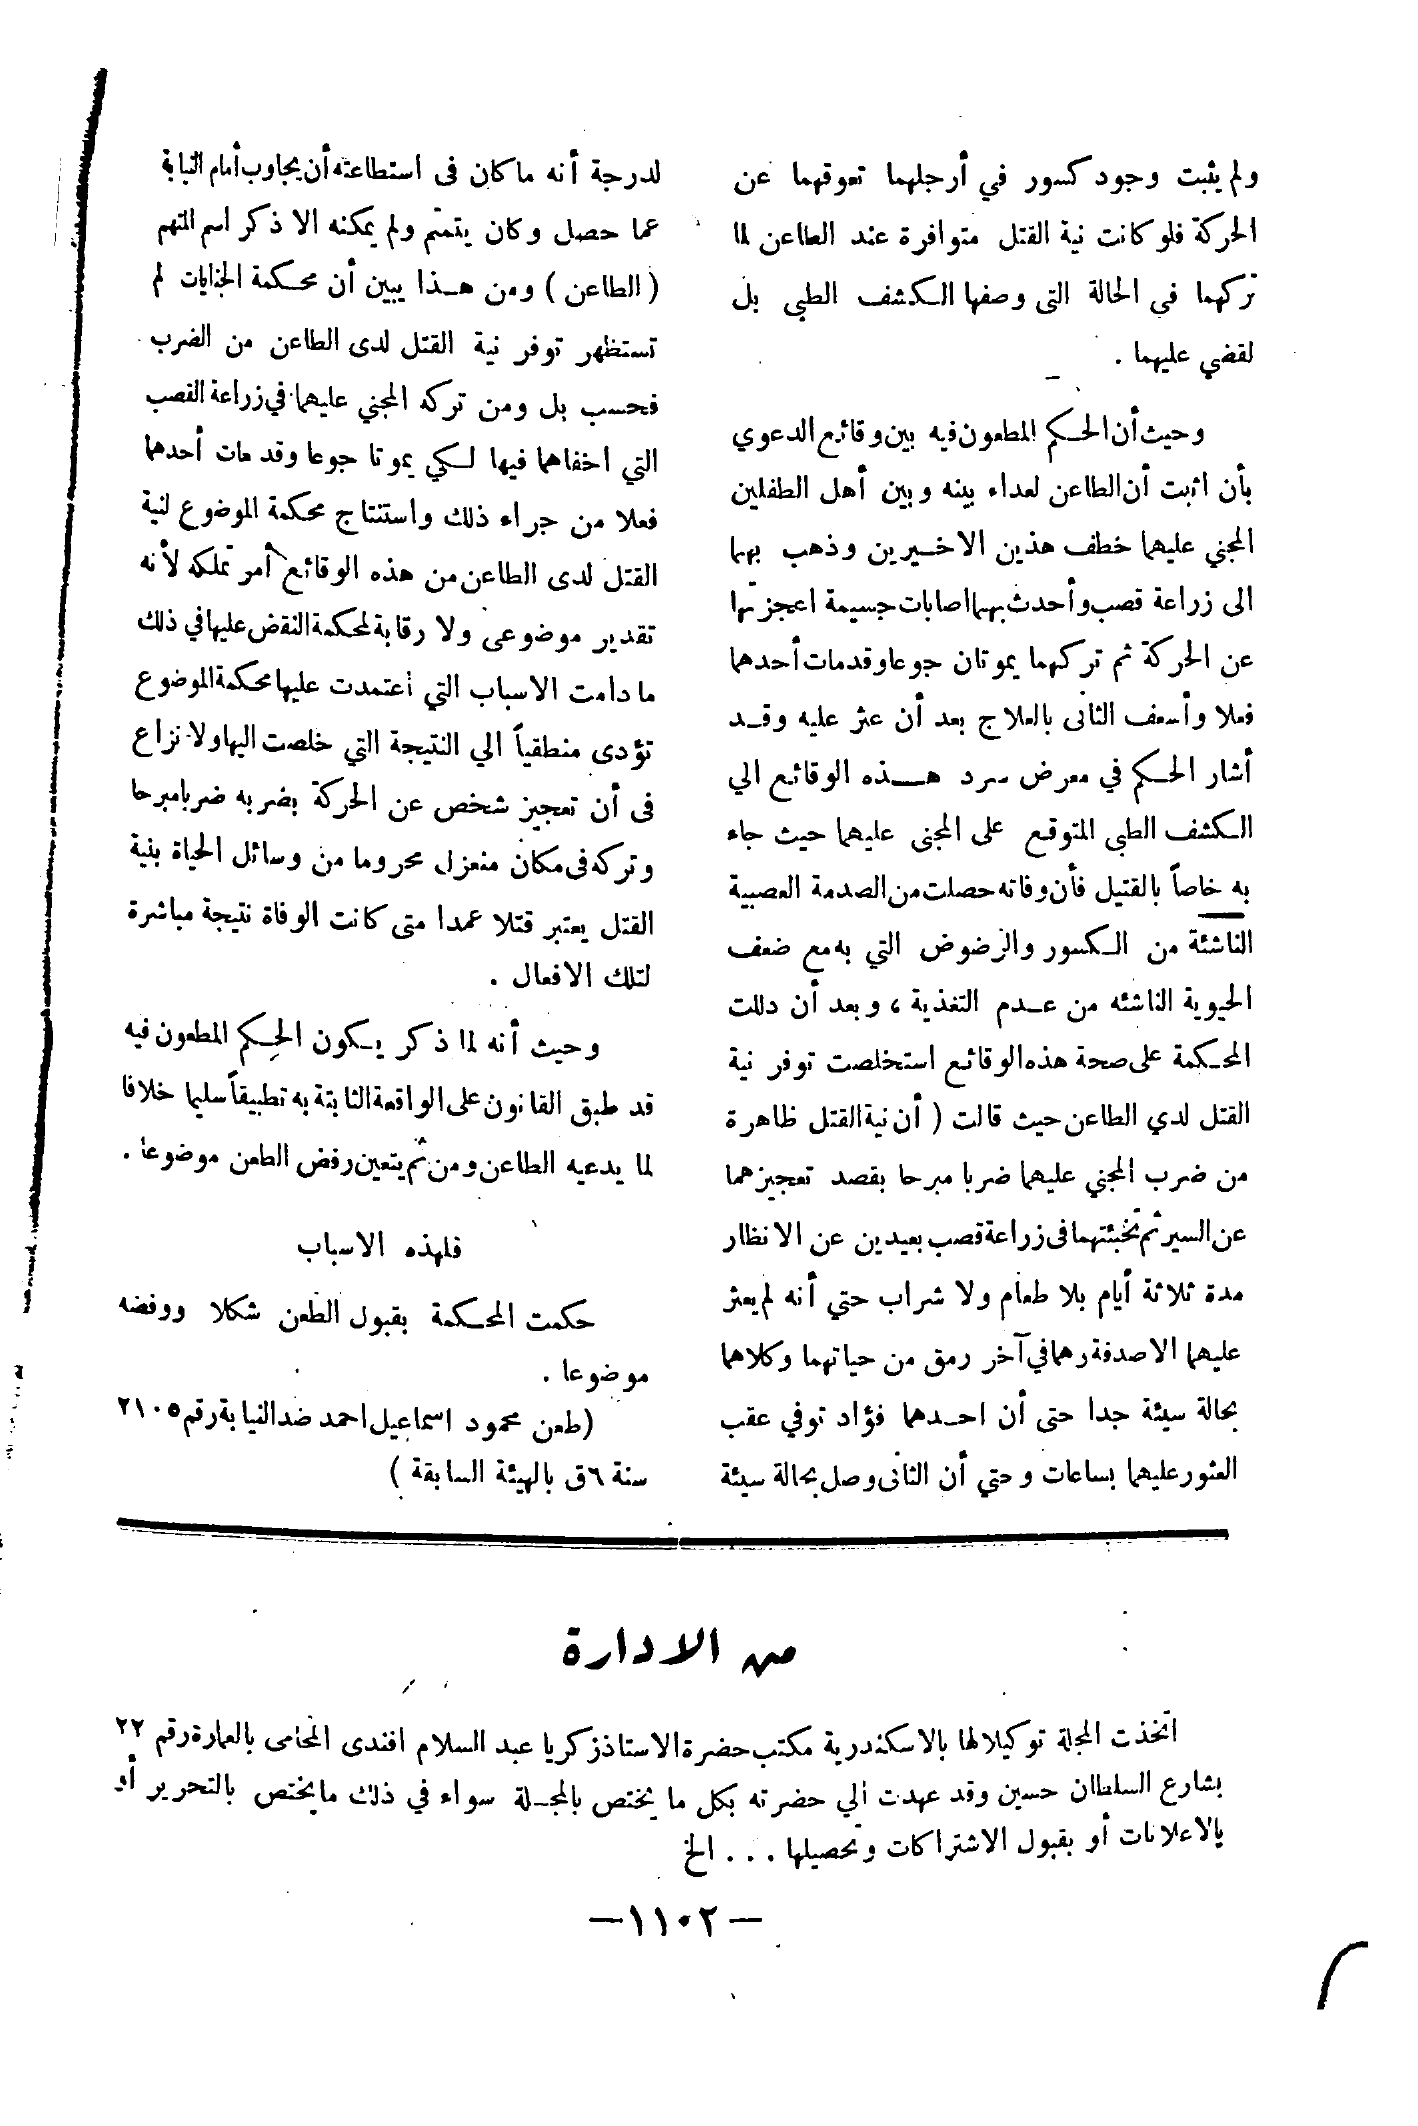 ولم يثبت وجود كسور في أرجلهما تعوقهما عن
الحركة فلو كانت نية القتل متوافرة عند الطاعن لما
تركهما في الحالة التى وصفها الكشف الطبي بل
لقضي عليهما .
وحيث أن الحكم المطعون فيه بين وقائع الدعوي
بأن اثبت أن الطاعن لعداء بينه وبين أهل الطفلين
المجني عليهما خطف هذين الاخيرين وذهب بهما
الى زراعة قصب وأحدث بهما اصابات جسيمة اعجزتهما
عن الحركة ثم تركهما يموتان جوعا وقد مات أحدهما
فعلا وأسعف الثانى بالعلاج بعد أن عثر عليه وقد
أشار الحكم في معرض سرد هذه الوقائع الي
الكشف الطبي المتوقع على المجنى عليهما حيث جاء
به خاصاً بالقتيل فأن وفاته حصلت من الصدمة العصبية
الناشئة من الكسور والرضوض التي به مع ضعف
الحيوية الناشئه من عدم التغذية ، وبعد أن دللت
المحكمة على صحة هذه الوقائع استخلصت توفر نية
القتل لدي الطاعن حيث قالت ( أن نية القتل ظاهرة
من ضرب المجني عليهما ضربا مبرحا بقصد تعجيزهما
عن السير ثم تخبئتهما فى زراعة قصب بعيدين عن الانظار
مدة ثلاثة أيام بلا طعام ولا شراب حتي أنه لم يعثر
عليهما الا صدفة وهما في آخر رمق من حياتهما وكلاهما
بحالة سيئة جدا حتى أن احدهما فؤاد توفي عقب
العثور عليهما بساعات وحتي أن الثانى وصل بحالة سيئة
لدرجة أنه ما كان فى استطاعته أن يجاوب أمام النيابة
عما حصل وكان يتمتم ولم يمكنه الا ذكر اسم المتهم
( الطاعن ) ومن هذا يبين أن محكمة الجنايات لم
تستظهر توفر نية القتل لدى الطاعن من الضرب
فحسب بل ومن تركه المجني عليهما في زراعة القصب
التي اخفاهما فيها لكي يموتا جوعا وقد مات أحدهما
فعلا من جراء ذلك واستنتاج محكمة الموضوع لنية
القتل لدى الطاعن من هذه الوقائع أمر تملكه لأنه
تقدير موضوعى ولا رقابة لمحكمة النقض عليها في ذلك
ما دامت الاسباب التي أعتمدت عليها محكمة الموضوع
تؤدى منطقياً الي النتيجة التي خلصت اليها ولا نزاع
فى أن تعجيز شخص عن الحركة بضربه ضربا مبرحا
وتركه فى مكان منعزل محروما من وسائل الحياة بنية
القتل يعتبر قتلا عمدا متى كانت الوفاة نتيجة مباشرة
لتلك الافعال .
وحيث أنه لما ذكر يكون الحكم المطعون فيه
قد طبق القانون على الواقعة الثابتة به تطبيقاً سليما خلافا
لما يدعيه الطاعن ومن ثم يتعين رفض الطعن موضوعا .
فلهذه الاسباب
حكمت المحكمة بقبول الطعن شكلا ورفضه
موضوعا .
( طعن محمود اسماعيل احمد ضد النيابة رقم ٢١٠٥
سنة ٦ق بالهيئة السابقة )
من الادارة
اتخذت المجلة توكيلا لها بالاسكندرية مكتب حضرة الاستاذ زكريا عبد السلام افندى المحامى بالعمارة رقم ٢٢
بشارع السلطان حسين وقد عهدت الي حضرته بكل ما يختص بالمجلة سواء في ذلك ما يختص بالتحرير أو
بالاعلانات أو بقبول الاشتراكات وتحصيلها . . . الخ
— ١١٠٢ —